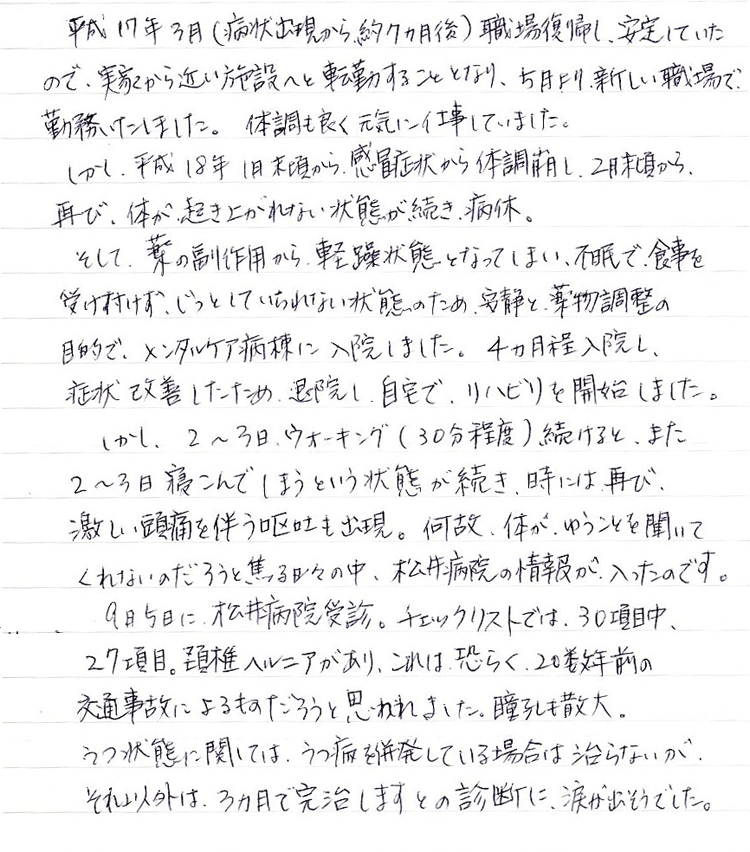 平成17年3月(病状出現から、約7カ月後)職場復帰し、安定していた
ので、実家から近い施設へと転勤することとなり、5月より、新しい職場で
勤務いたしました。体調も良く元気に仕事していました。
しかし、平成18年1月末頃から、感冒症状から体調崩し、2月末頃から、
再び、体が、起き上がれない状態が続き、病休。
そして、薬の副作用から、軽躁状態となってしまい、不眠で、食事を
受け付けず、じっとしていられない状態のため、安静と、薬物調整の
目的で、メンタルケア病棟に入院しました。4カ月程入院し、
症状改善したため、退院し、自宅で、リハビリを開始しました。
しかし、2〜3日、ウォーキング(30分程度)続けると、また
2〜3日寝こんでしまうという状態が続き、時には、再び、
激しい頭痛を伴う嘔吐も出現。何故、体が、ゆうことを聞いて
くれないのだろうと焦る日々の中、松井病院の情報が、入ったのです。
9月5日に、松井病院受診。チェックリストでは、30項目中、
27項目。頚椎ヘルニアがあり、これは、恐らく、20数年前の
交通事故によるものだろうと思われました。瞳孔も散大。
うつ状態に関しては、うつ病を併発している場合は治らないが、
それ以外は、3カ月で完治しますとの診断に、涙が出そうでした。